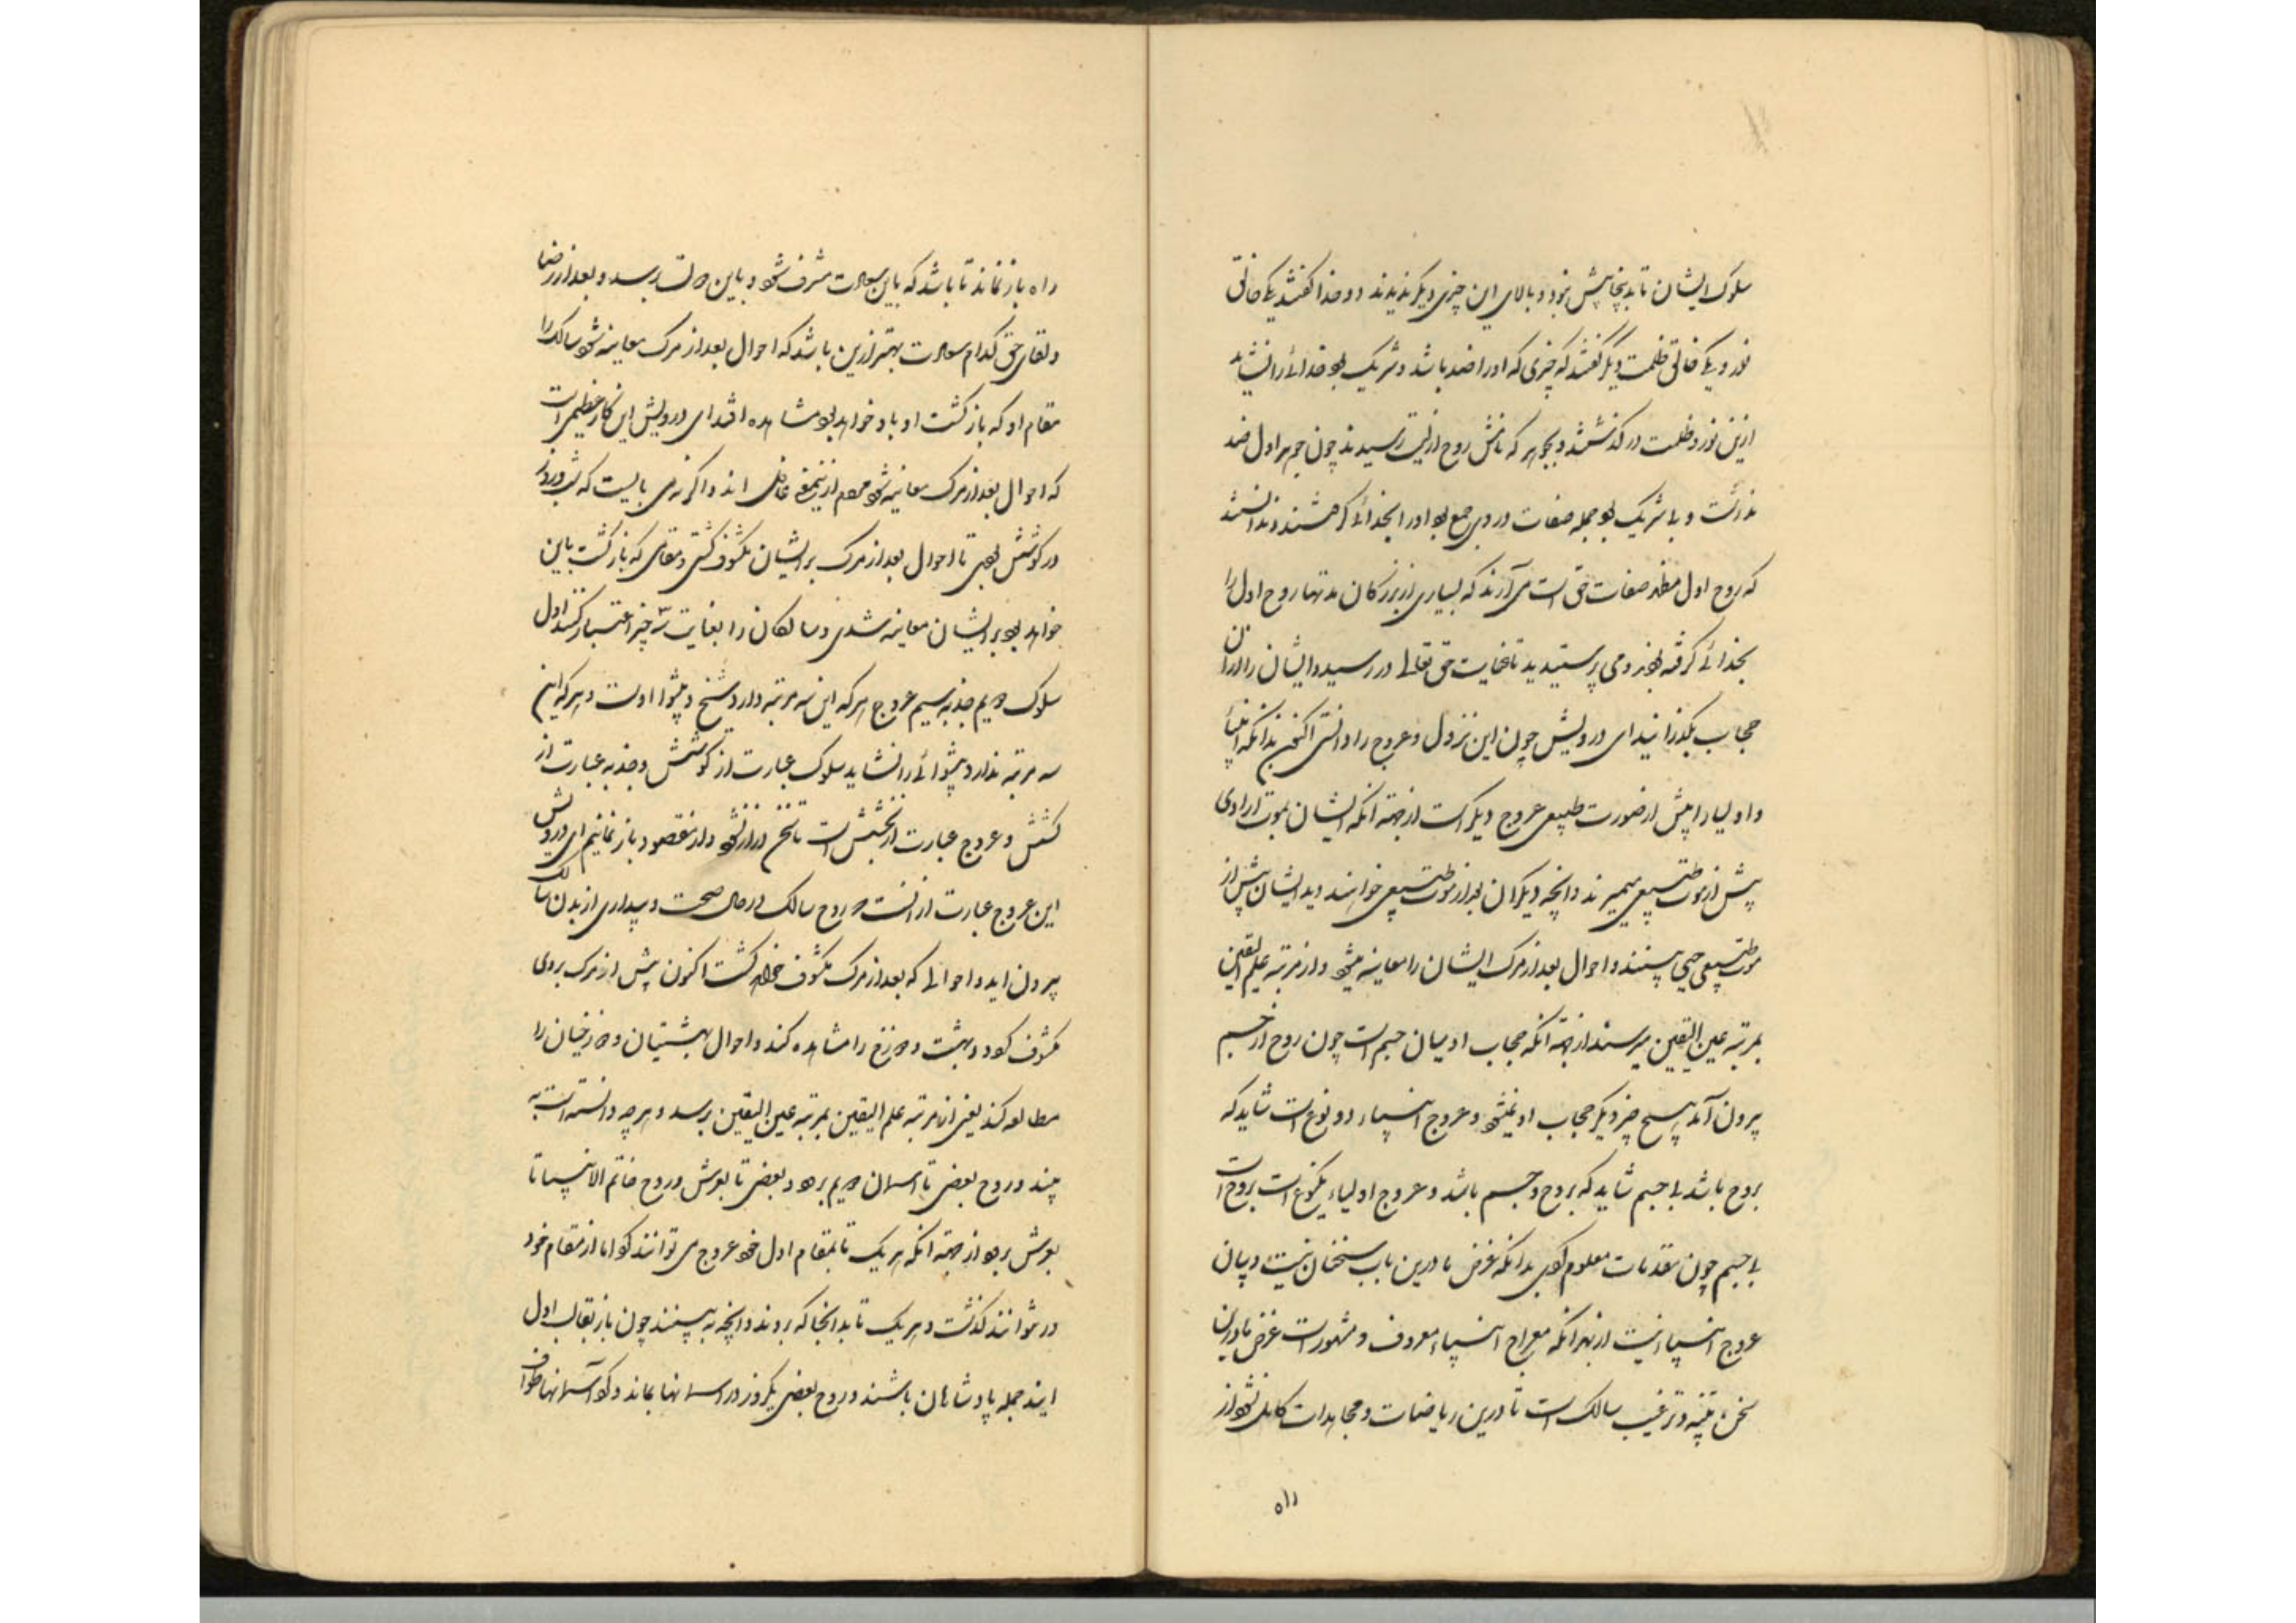 سلوک ایشان تا بدینجا بیش نبود و بالای این چیزی دیگر ندیدند دو خدا گفتند یکی خالق
نور و یکی خالق ظلمت دیگر گفتند که چیزی که او را ضد باشد و شریک بود خدائی را نشاید
ازین نور و ظلمت درگذشتند و بجوهر که نامش روح اولیست رسیدند چون جوهر اول ضد
نداشت و بی شریک بود جمله صفات در وی جمع بود او را بخدائی گرفتند و ندانستند
که روح اول مظهر صفات حق است می آرند که بسیاری از بزرگان مدتها روح اول را
بخدائی گرفته بودند و می پرستیدند تا عنایت حق تعالی در رسید و ایشان را از ان
حجاب بگذرانید ای درویش چون این نزول و عروج را دانستی اکنون بدانکه انبیا
و اولیا را پیش از صورت طبیعی عروج دیگر است از جهت آنکه ایشان بموت ارادی
پیش از موت طبیعی میمیرند و آنچه دیگران بعد از موت طبیعی خواهند دید ایشان پیش از
موت طبیعی می بینند و احوال بعد از مرک ایشان را معاینه میشود و از مرتبه علم الیقین
بمرتبه عین الیقین میرسند از جهت آنکه حجاب آدمیان جسم است چون روح از جسم
بیرون آمد هیچ چیز دیگر حجاب او نمیشود و عروج انبیاء دو نوع است شاید که
بروح باشد بی جسم شاید که بروح و جسم باشد و عروج اولیاء یکنوع است بروح است
بی جسم چون مقدمات معلوم کردی بدانکه غرض ما درین باب سخنان نیست و بیان
عروج انبیاء نیست از بهر آنکه معراج انبیاء معروف و مشهور است غرض ما درین
سخن تنبیه و ترغیب سالک است تا درین ریاضات و مجاهدات کاهل نشود از
راه
راه باز نماند تا باشد که باین سعادت مشرف شود و باین دولت برسد و بعد از رضا
و لقای حق کدام سعادت بهتر ازین باشد که احوال بعد از مرک معاینه شود سالک را
مقام او که بازگشت او بدو خواهد بود مشاهده افتد ای درویش این کار عظیم است
که احوال بعد از مرک معاینه شود مردم ازین معنی غافل اند و اگر نه می بایست که شب و روز
در کوشش بودی تا احوال بعد از مرک بر ایشان مکشوف گشتی و مقامی که بازگشت باین
خواهد بود بر ایشان معاینه شدی و سالکان را بغایت سه چیز اعتبار کنند اول
سلوک دویم جذبه سیم عروج هر که این سه مرتبه دارد شیخ و پیشوا اوست و هر که این
سه مرتبه ندارد پیشوائی را نشاید سلوک عبارت از کوشش و جذبه عبارت از
کشش و عروج عبارت از بخشش است تا سخن دراز نشود و از مقصود باز نمانیم ای درویش
این عروج عبارت از آنست که روح سالک در حال صحت و بیداری از بدن سالک
بیرون آید و احوالی که بعد از مرک مکشوف خواهد گشت اکنون پیش از مرک بروی
مکشوف گردد و بهشت و دوزخ را مشاهده کند و احوال بهشتیان و دوزخیان را
مطالعه کند یعنی از مرتبه علم الیقین بمرتبه عین الیقین برسد و هر چه دانسته است به
بیند و روح بعضی تا آسمان دویم برود و بعضی تا بعرش و روح خاتم الانبیا تا
بعرش برود از جهت آنکه هر یک تا بمقام اول خود عروج می توانند کرد اما از مقام خود
در نتوانند گذشت و هر یک تا بدانجا که روند و آنچه به بینند چون باز بقالب اول
آیند جمله یاد شاهان باشند و روح بعضی یکروز در آسمانها بماند و گرد آسمانها طواف